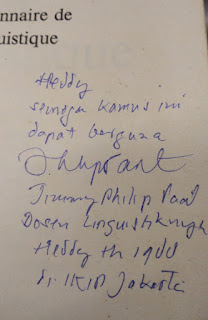 nnaire de
uistique
Heddy
semoga kamus ini
dapat berguna
Jimmy Philip Paat
Dosen Linguistiknya
Heddy th 1988
di IKIP Jakarta